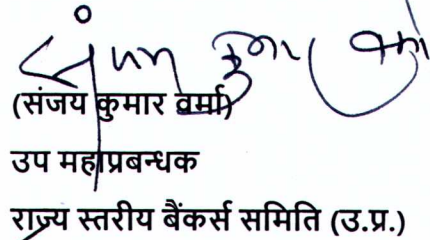 संजय कुमार वर्मा
(संजय कुमार वर्मा)
उप महाप्रबन्धक
राज्य स्तरीय बैंकर्स समिति (उ.प्र.)